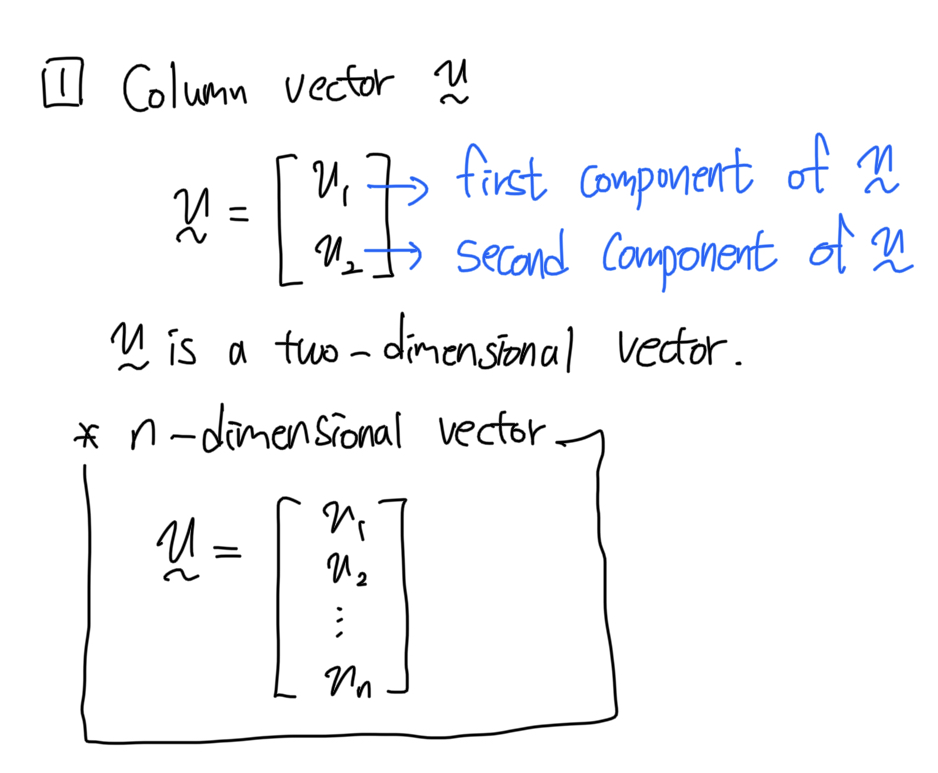 1 Column vector ṵ
ṵ = [ u₁ → first component of ṵ
u₂ ] → second component of ṵ
ṵ is a two-dimensional vector.
* n-dimensional vector
ṵ = [ u₁
u₂
⋮
uₙ ]